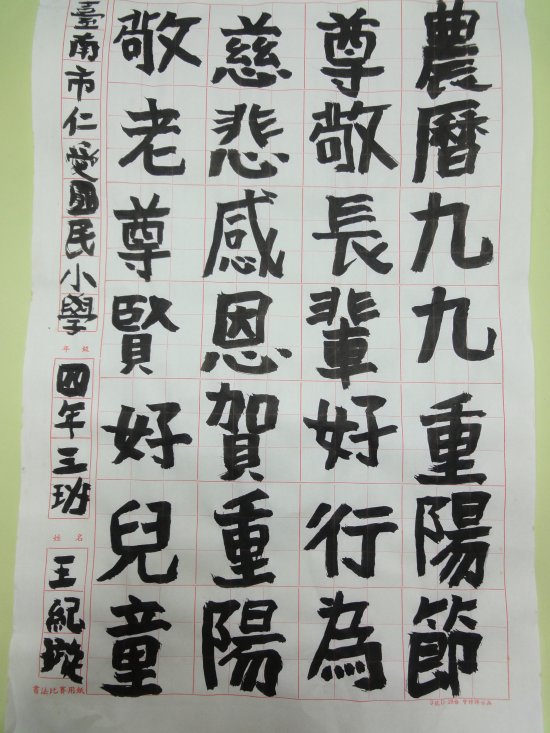 農曆九九重陽節
尊敬長輩好行為
慈悲感恩賀重陽
敬老尊賢好兒童
臺南市仁愛國民小學
年級
四年三班
姓名
王紀璇
書法比賽用紙